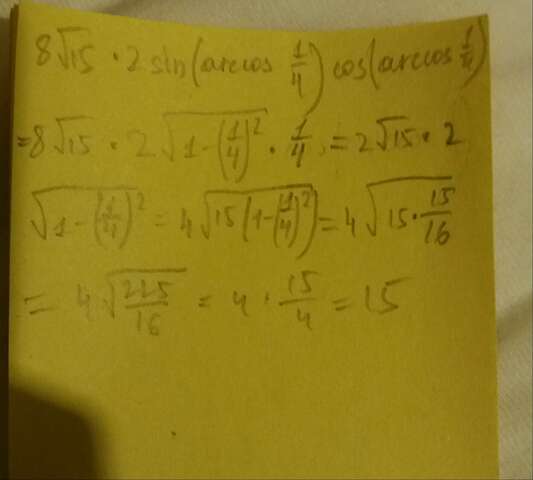 8√15 · 2 sin(arccos 1/4) cos(arccos 1/4)
= 8√15 · 2√(1-(1/4)²) · 1/4 = 2√15 · 2
√(1-(1/4)²) = 4√(15(1-(1/4)²)) = 4√(15·15/16)
= 4√(225/16) = 4 · 15/4 = 15